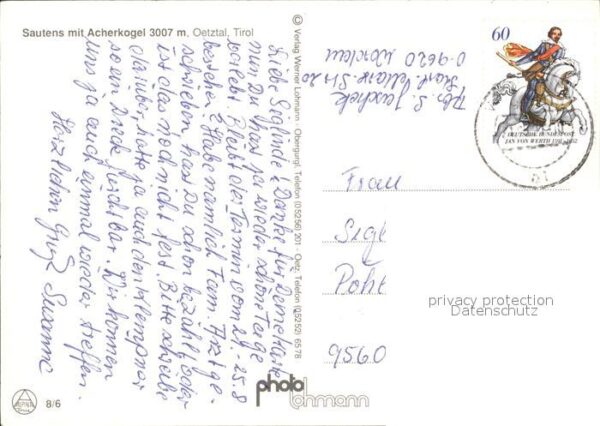 Sautens mit Acherkogel 3007 m, Oetztal, Tirol
© Verlag Werner Lohmann · Obergurgl, Telefon (05256) 201 · Oetz, Telefon (05252) 6578
Liebe Sieglinde! Danke für Deine Karte
nun Du hast ja wieder schöne Tage
verlebt. Bleibt der Termin vom 21.-25.8
bestehen? Habe nämlich Fam.
schrieben. Hast Du schon bezahlt oder
ist das noch nicht fest. Bitte schreibe
darüber, hatte ja auch den Klempner
soein Dreck furchtbar. Wir können
uns ja auch einmal wieder treffen.
Herzlichen Gruß Susanne
Abs. S.
O-9620 Werdau
60
DEUTSCHE BUNDESPOST
JAN VON WERTH 1591-1652
Frau
Sigl
Poht
9560
privacy protection
Datenschutz
photo
lohmann
8/6